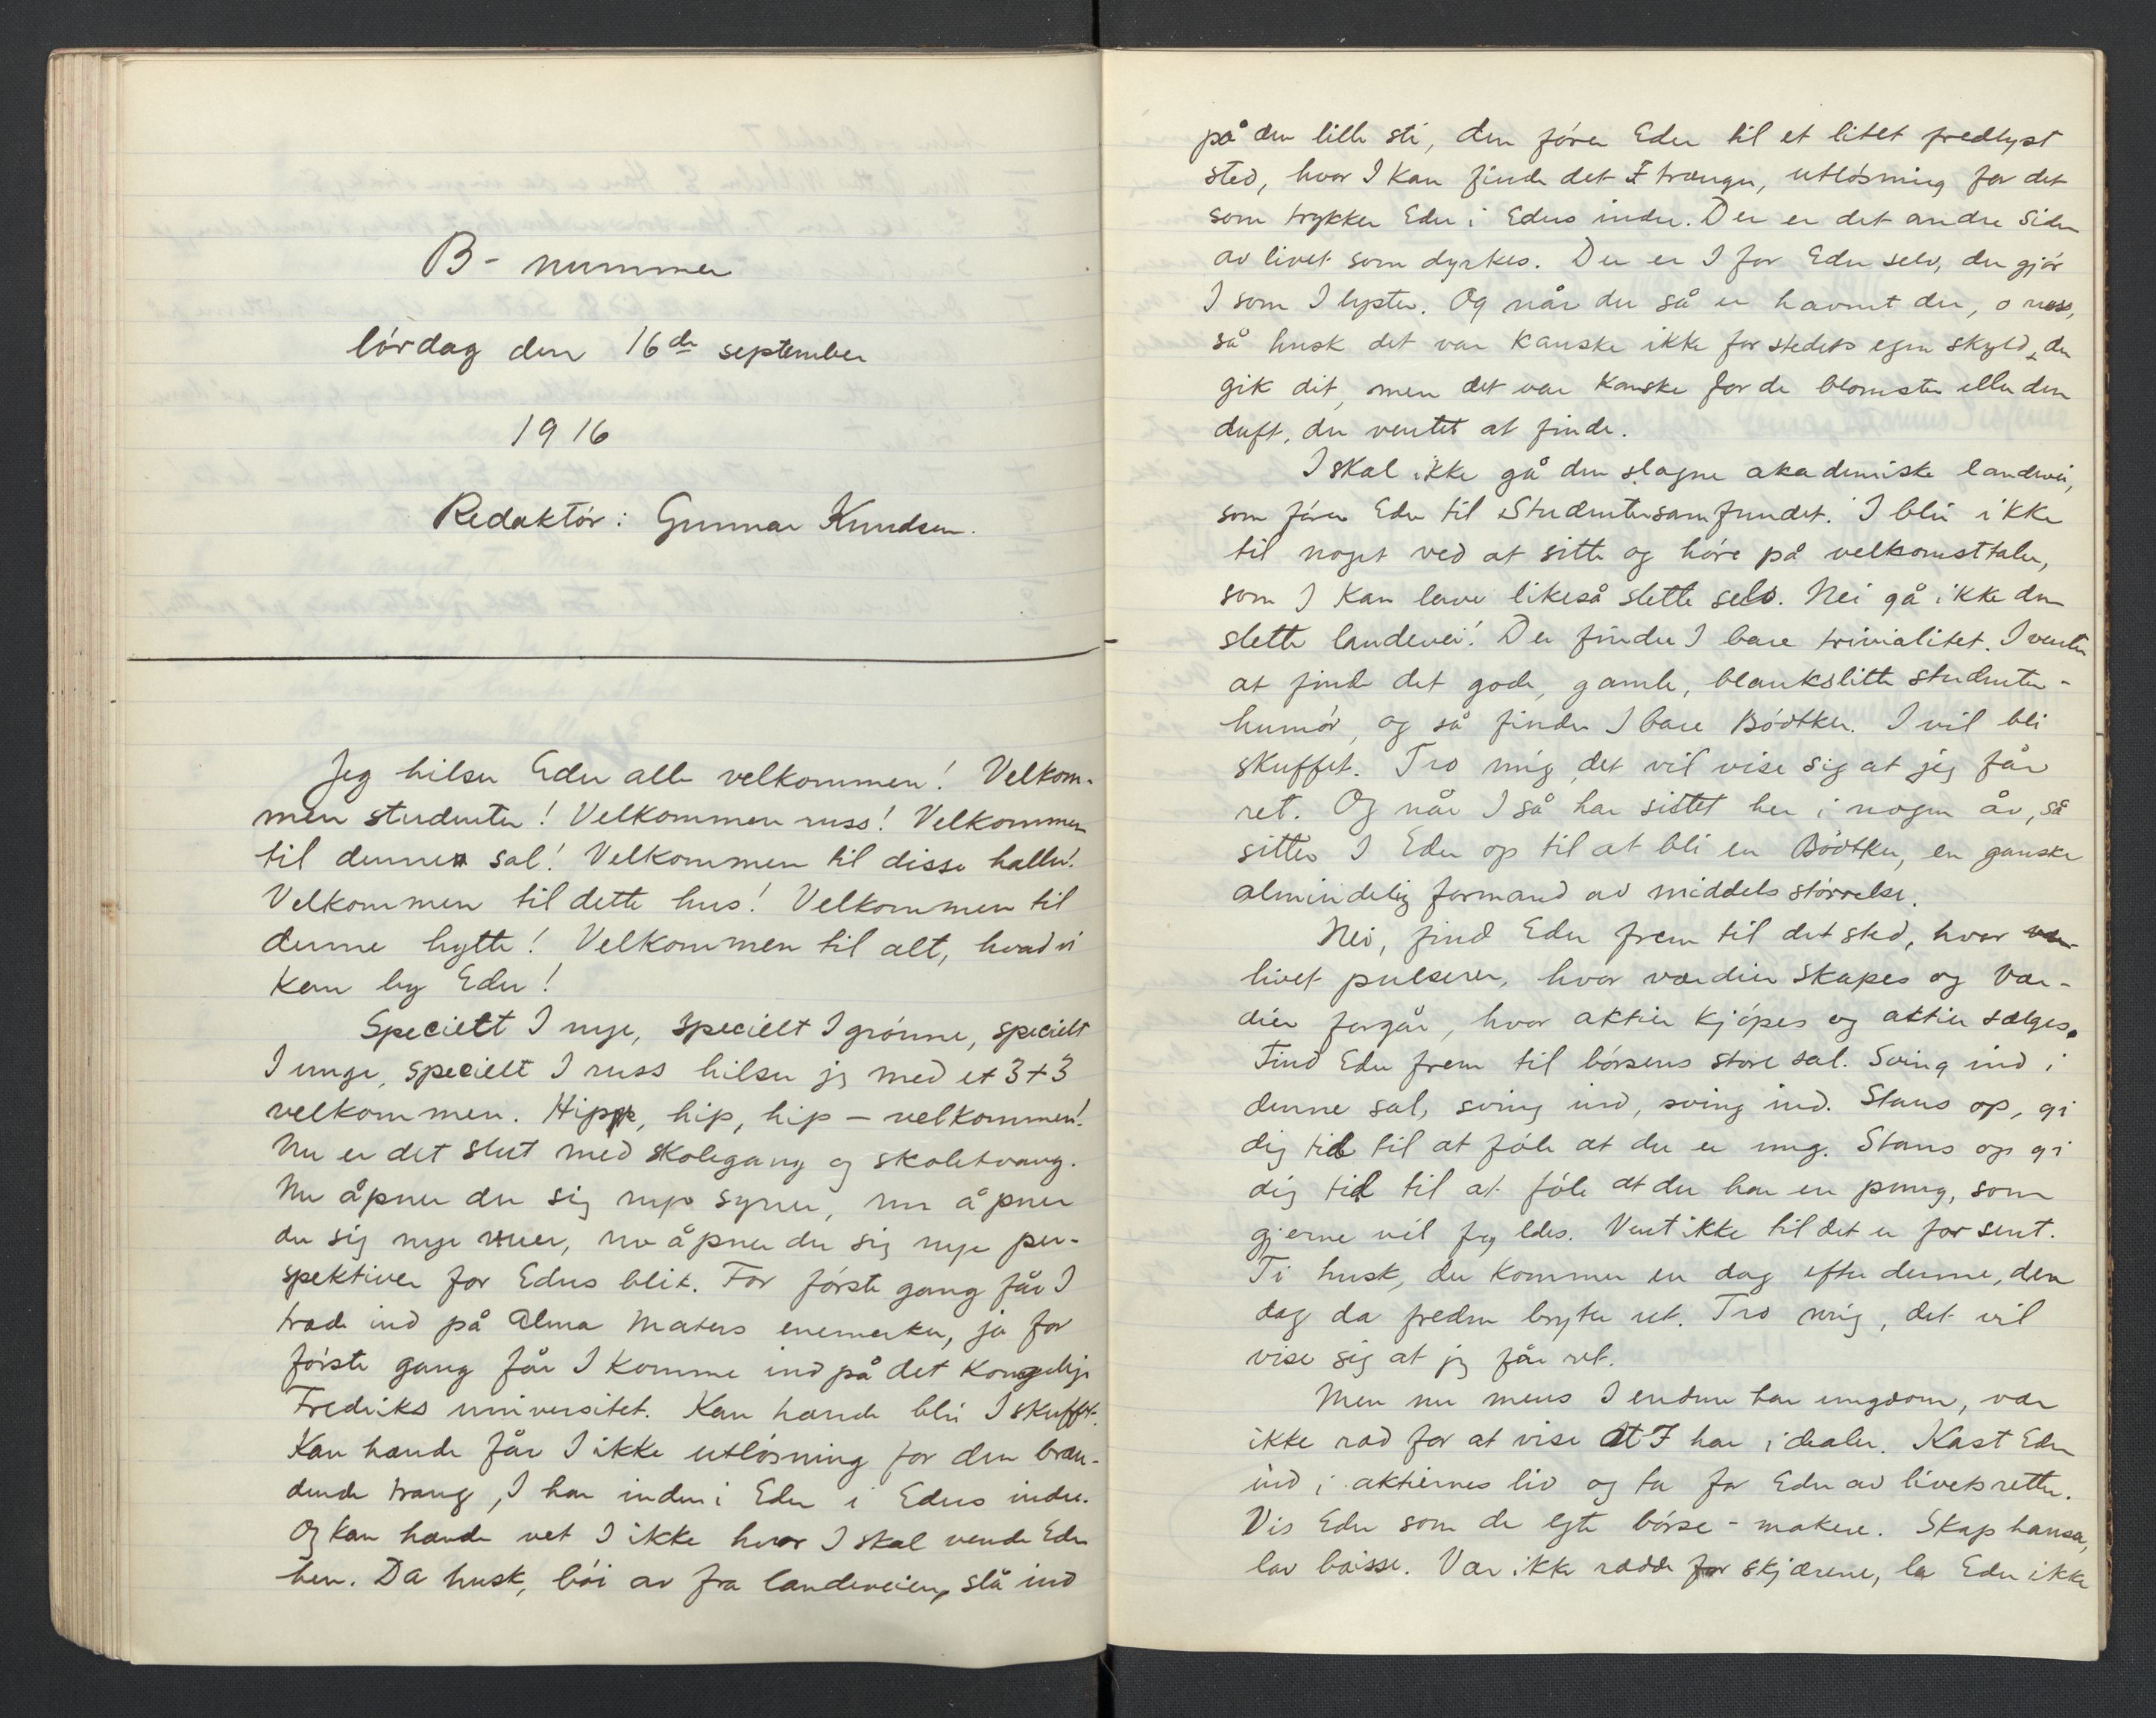 B- nummer
lördag den 16de september
1916
Redaktör: Gunnar Knudsen.
Jeg hilser Eder alle velkommen! Velkom-
men studenter! Velkommen russ! Velkommen
til denne sal! Velkommen til disse haller!
Velkommen til dette hus! Velkommen til
denne hytte! Velkommen til alt, hvad vi
kan by Eder!
Specielt I nye, specielt I grönne, specielt
I unge, specielt I russ hilser jeg med et 3+3
velkommen. Hipp, hip, hip – velkommen!
Nu er det slut med skolegang og skoletvang.
Nu åpner der sig nye syner, nu åpner
der sig nye veier, nu åpner der sig nye per-
spektiver for Eders blik. For förste gang får I
træde ind på Alma Maters enemerker, ja for
förste gang får I komme ind på det Kongelige
Fredriks universitet. Kan hænde blir I skuffet.
Kan hænde får I ikke utlösning for den bræn-
dende trang, I har inden i Eder i Eders indre.
Og kan hænde vet I ikke hvor I skal vende Eder
hen. Da husk, böi av fra landeveien, slå ind
på den lille sti, den förer Eder til et litet fredlyst
sted, hvor I kan finde det I trænger, utlösning for det
som trykker Eder i Eders indre. Der er det andre sider
av livet som dyrkes. Der er I for Eder selv, der gjör
I som I lyster. Og når du så er havnet der, o russ,
så husk det var kanske ikke for stedets egen skyld, du
gik dit, men det var kanske for de blomster eller den
duft, du ventet at finde.
I skal ikke gå den slagne akademiske landevei,
som förer Eder til Studentersamfundet. I blir ikke
til noget ved at sitte og höre på velkomsttaler,
som I kan lave likeså slette selv. Nei gå ikke den
slette landevei! Der finder I bare trivialitet. I venter
at finde det gode, gamle, blankslitte studenter-
humör, og så finder I bare Bödtker. I vil bli
skuffet. Tro mig, det vil vise sig at jeg får
ret. Og når I så har sittet her i nogen år, så
sitter I Eder op til at bli en Bödtker, en ganske
almindelig formand av middels störrelse.
Nei, find Eder frem til det sted, hvor
livet pulserer, hvor værdier skapes og vær-
dier forgår, hvor aktier kjöpes og aktier sælges.
Find Eder frem til börsens store sal. Sving ind i
denne sal, sving ind, sving ind. Stans op, gi
dig tid til at föle at du er ung. Stans op gi
dig tid til at föle at du har en pung, som
gjerne vil fyldes. Vent ikke til det er for sent.
Ti husk, der kommer en dag efter denne, den
dag da freden bryter ut. Tro mig, det vil
vise sig at jeg får ret.
Men nu mens I endnu har ungdom, vær
ikke ræd for at vise at I har idealer. Kast Eder
ind i aktiernes liv og ta for Eder av livets retter.
Vis Eder som de egte börse-makere. Skap hausse,
lav baisse. Vær ikke rædde for skjærene, la Eder ikke